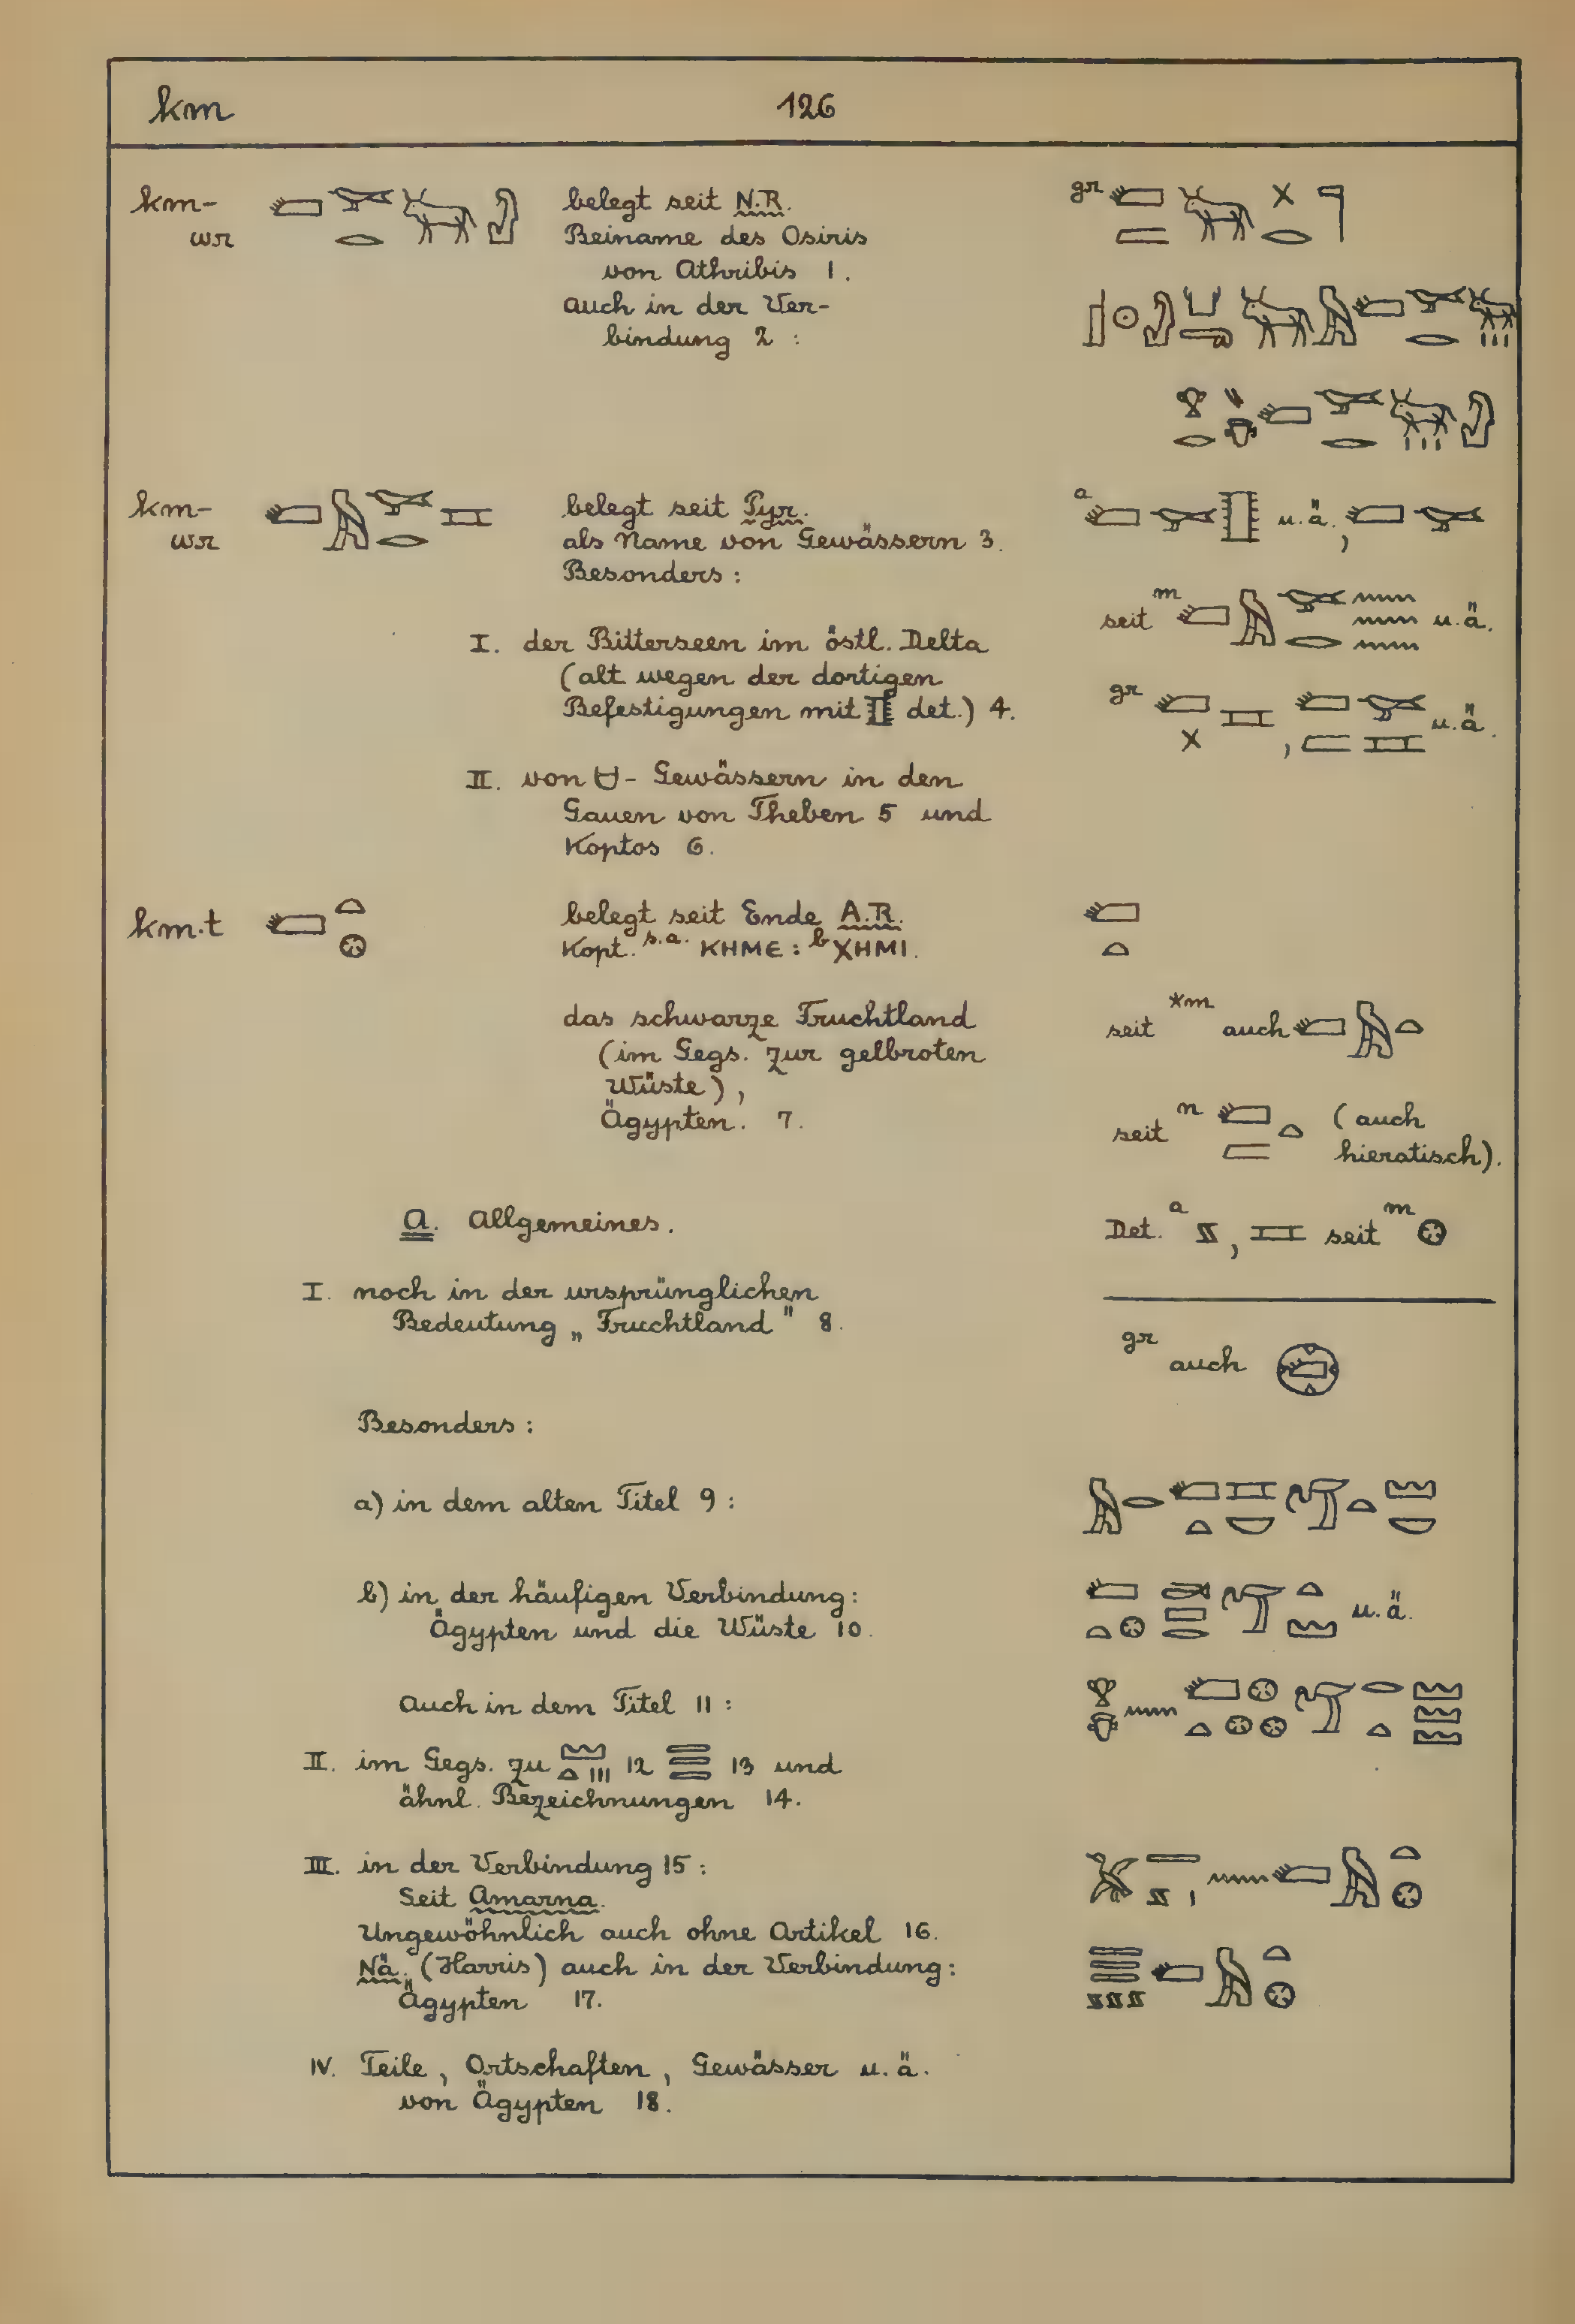 km 126
km-wr belegt seit N.R. gr
Beiname des Osiris
von Athribis 1.
auch in der Ver-
bindung 2 :
km-wr belegt seit Pyr. a u.ä.,
als Name von Gewässern 3.
Besonders :
seit m u.ä.
I. der Bitterseen im östl. Delta
(alt wegen der dortigen
Befestigungen mit det.) 4. gr , u.ä.
II. von - Gewässern in den
Gauen von Theben 5 und
Koptos 6.
km.t belegt seit Ende A.R.
Kopt. s.a. ⲕⲏⲙⲉ : b ⲭⲏⲙⲓ.
das schwarze Fruchtland seit *m auch
(im Gegs. zur gelbroten
Wüste),
Ägypten. 7. seit n (auch
hieratisch).
A. Allgemeines. Det. a , seit m
I. noch in der ursprünglichen
Bedeutung „Fruchtland" 8.
gr auch
Besonders :
a) in dem alten Titel 9 :
b) in der häufigen Verbindung: u.ä.
Ägypten und die Wüste 10.
Auch in dem Titel 11 :
II. im Gegs. zu 12 13 und
ähnl. Bezeichnungen 14.
III. in der Verbindung 15 :
Seit Amarna.
Ungewöhnlich auch ohne Artikel 16.
Nä. (Harris) auch in der Verbindung:
Ägypten 17.
IV. Teile, Ortschaften, Gewässer u.ä.
von Ägypten 18.